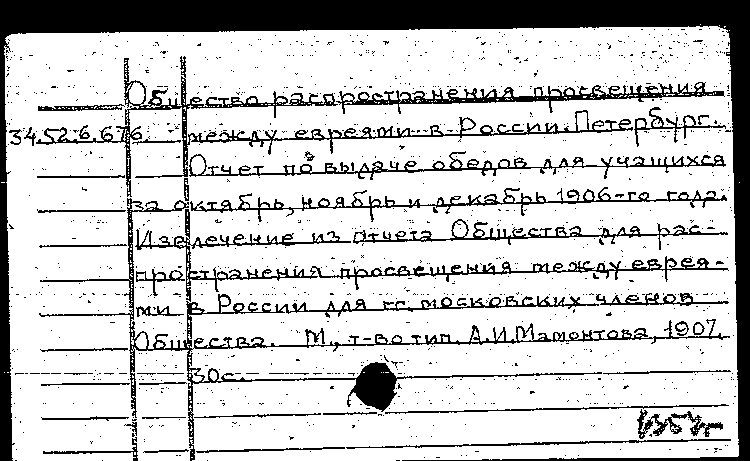 Общество распространения просвещения
34.52.6.676. между евреями в России. Петербург.
Отчет по выдаче обедов для учащихся
за октябрь, ноябрь и декабрь 1906-го года.
Извлечение из отчета Общества для рас-
пространения просвещения между еврея-
ми в России для гг. московских членов
Общества. М., т-во тип. А.И.Мамонтова, 1907.
30с.